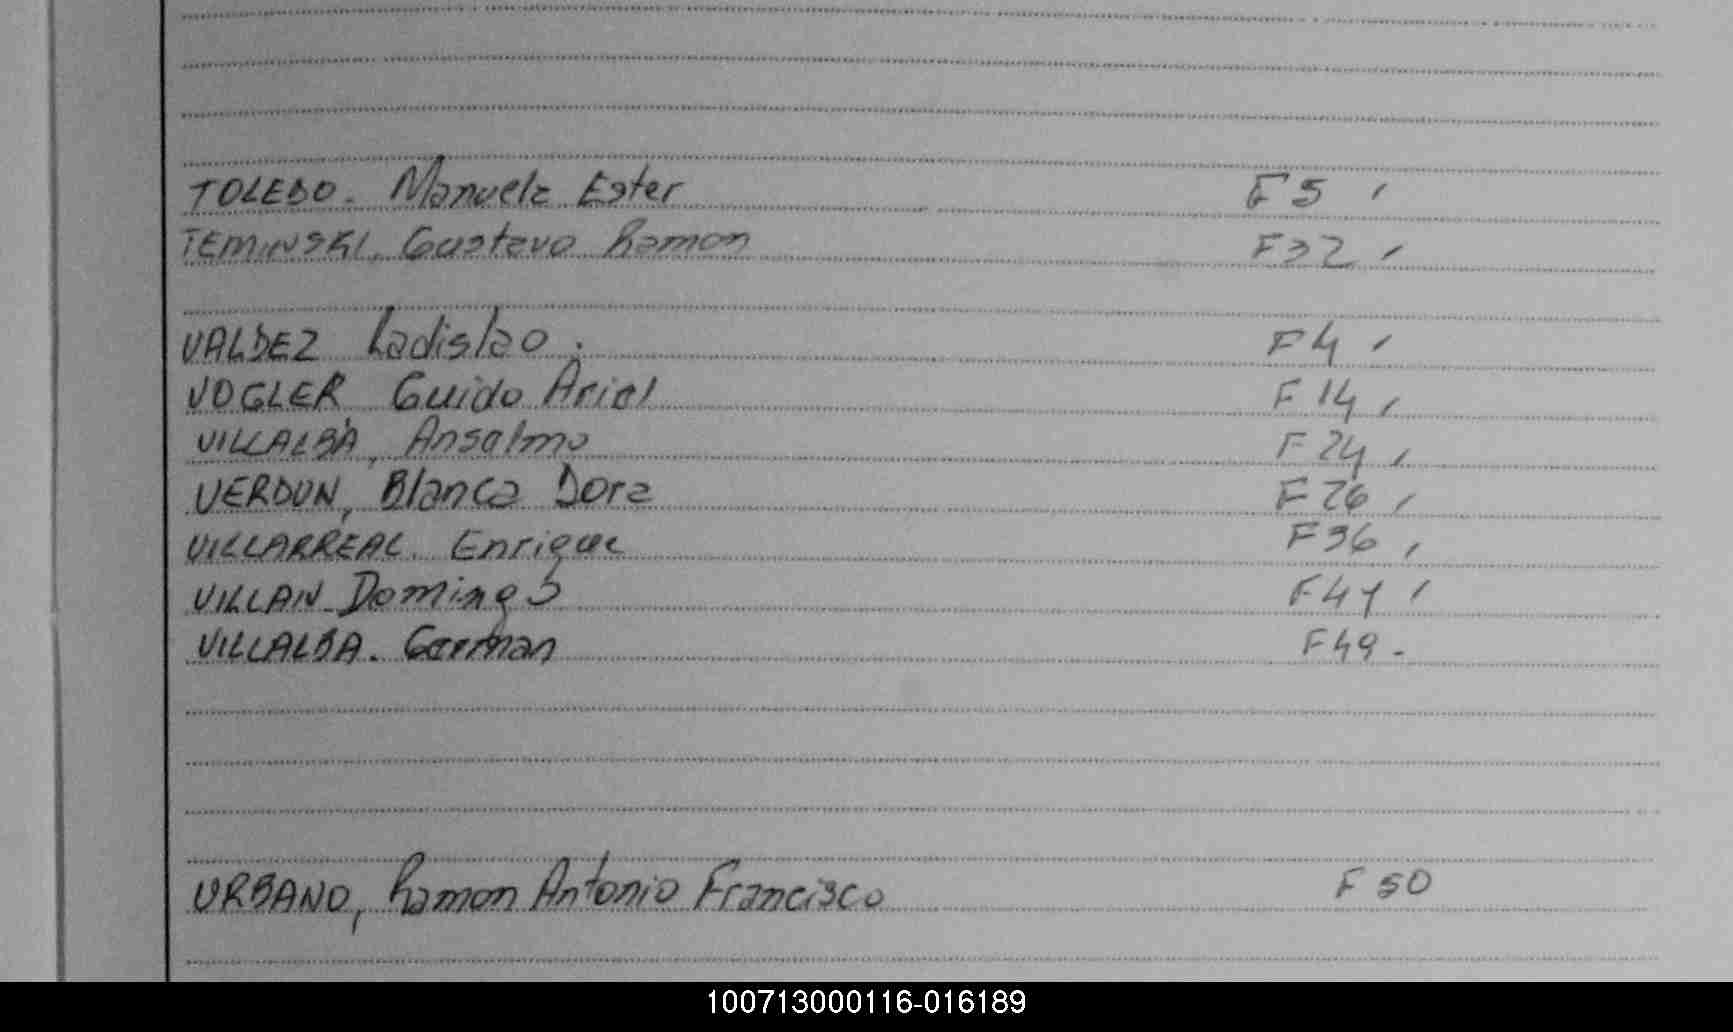 TOLEDO. Manuela Ester F 5 ,
TEMINSKI, Gustavo Ramon F 32 ,
VALDEZ Ladislao . F 4 ,
VOGLER Guido Ariel F 14 ,
VILLALBA, Anselmo F 24 ,
VERDUN, Blanca Dora F 26 ,
VILLARREAL. Enrique F 36 ,
VILLAN Domingo F 41 ,
VILLALBA. German F 49 .
URBANO, Ramon Antonio Francisco F 50
100713000116-016189